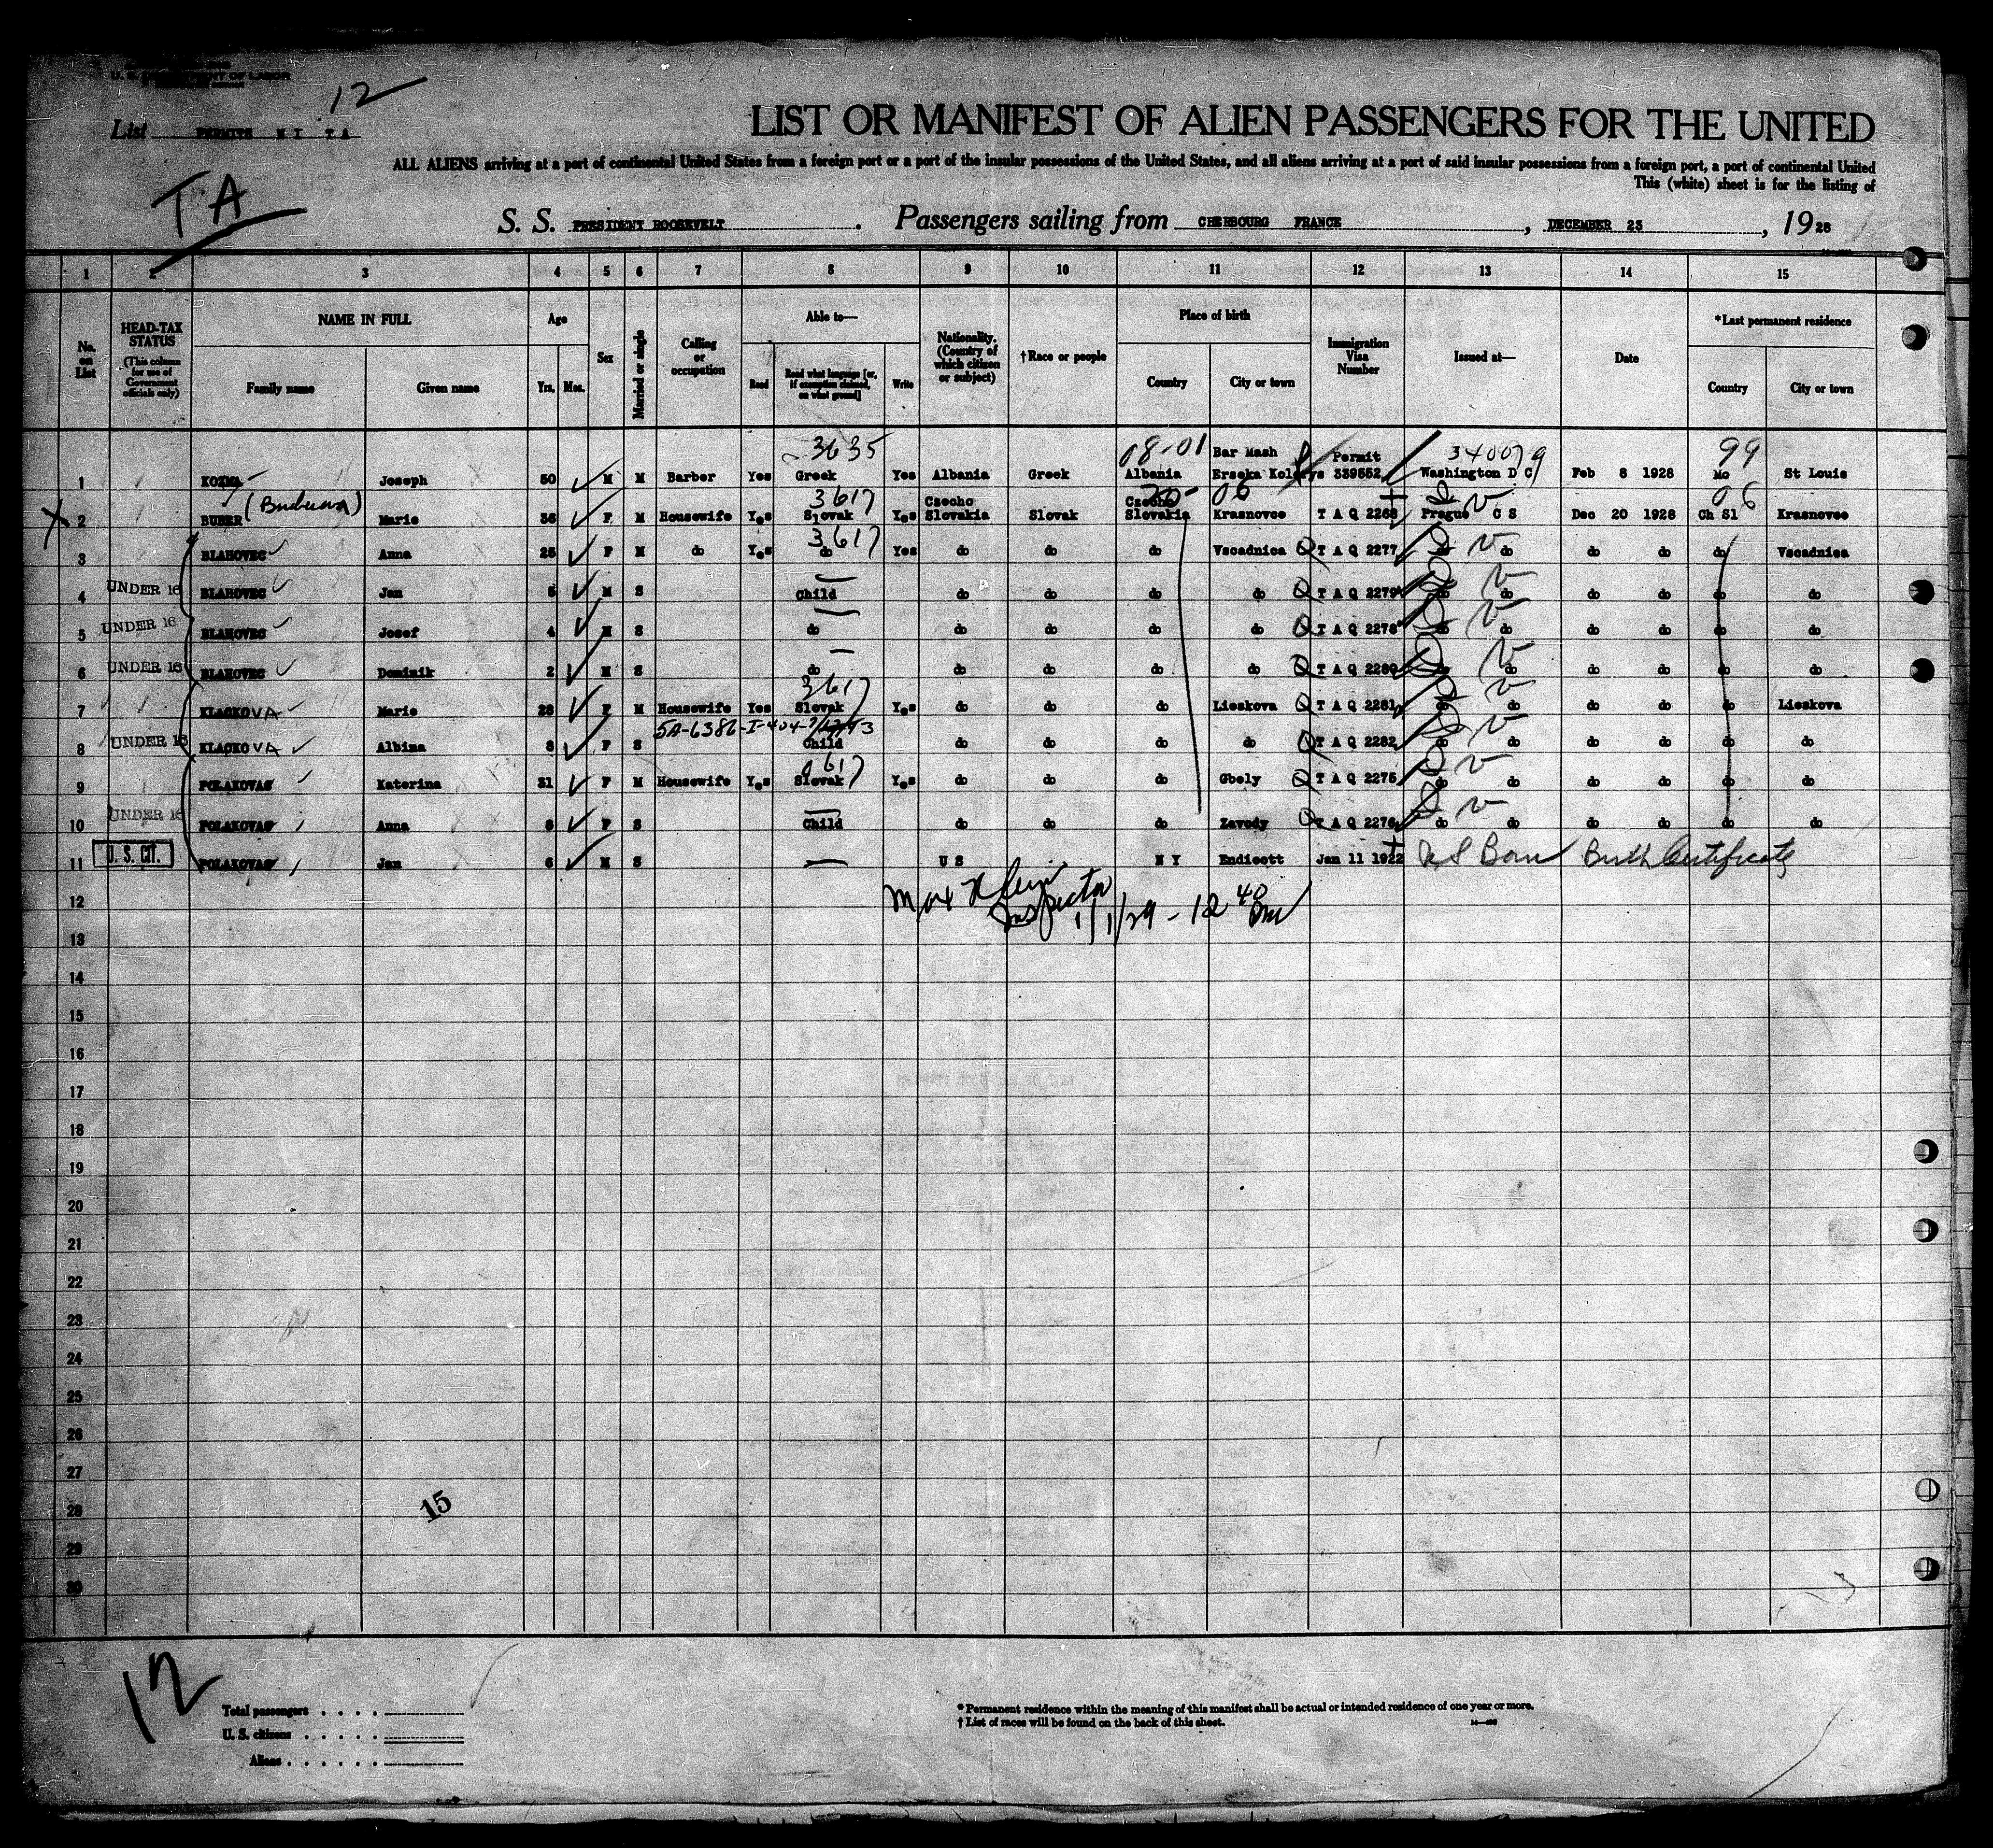 U. S. DEPARTMENT OF LABOR
12
List PERMITS N I T A
LIST OR MANIFEST OF ALIEN PASSENGERS FOR THE UNITED
ALL ALIENS arriving at a port of continental United States from a foreign port or a port of the insular possessions of the United States, and all aliens arriving at a port of said insular possessions from a foreign port, a port of continental United
This (white) sheet is for the listing of
TA
S. S. PRESIDENT ROOSEVELT. Passengers sailing from CHERBOURG FRANCE, DECEMBER 23, 1928
1 2 3 4 5 6 7 8 9 10 11 12 13 14 15
No. on List
HEAD-TAX STATUS
(This column for use of Government officials only)
NAME IN FULL
Family name Given name
Age
Yrs. Mos.
Sex
Married or single
Calling or occupation
Able to—
Read Read what language [or, if exemption claimed, on what ground] Write
Nationality. (Country of which citizen or subject)
†Race or people
Place of birth
Country City or town
Immigration Visa Number
Issued at—
Date
*Last permanent residence
Country City or town
3635 08-01 Bar Mash Permit 340079 99
1 KOZMA Joseph 50 M M Barber Yes Greek Yes Albania Greek Albania Erseka Kolonys 339552 Washington D C Feb 8 1928 Mo St Louis
3617 Czecho Czecho 06 06
2 BUBER Marie 36 F M Housewife Yes Slovak Yes Slovakia Slovak Slovakia Krasnovce T A Q 2268 Prague C S Dec 20 1928 Ch Sl Krasnovce
3617
3 BLAHOVEC Anna 25 F M do Yes do Yes do do do Vscadnica T A Q 2277 do do do do do Vscadnica
4 UNDER 16 BLAHOVEC Jan 5 M S Child do do do do T A Q 2279 do do do do do do
5 UNDER 16 BLAHOVEC Josef 4 M S do do do do do T A Q 2278 do do do do do do
6 UNDER 16 BLAHOVEC Dominik 2 M S do do do do do T A Q 2280 do do do do do do
3617
7 KLACKOVA Marie 28 F M Housewife Yes Slovak Yes do do do Lieskova T A Q 2281 do do do do do Lieskova
8 UNDER 16 KLACKOVA Albina 8 F S Child do do do do T A Q 2282 do do do do do do
9 POLAKOVAS Katerina 31 F M Housewife Yes Slovak Yes do do do Gbely T A Q 2275 do do do do do do
10 UNDER 16 POLAKOVAS Anna 8 F S Child do do do Zavody T A Q 2276 do do do do do do
11 U. S. CIT. POLAKOVAS Jan 6 M S U S N Y Endicott Jan 11 1922 U S Born Birth Certificate
12
Inspector
1/1/29 - 12 40 PM
13
14
15
16
17
18
19
20
21
22
23
24
25
26
27
15
28
29
30
12
Total passengers
U. S. citizens
Aliens
* Permanent residence within the meaning of this manifest shall be actual or intended residence of one year or more.
† List of races will be found on the back of this sheet.